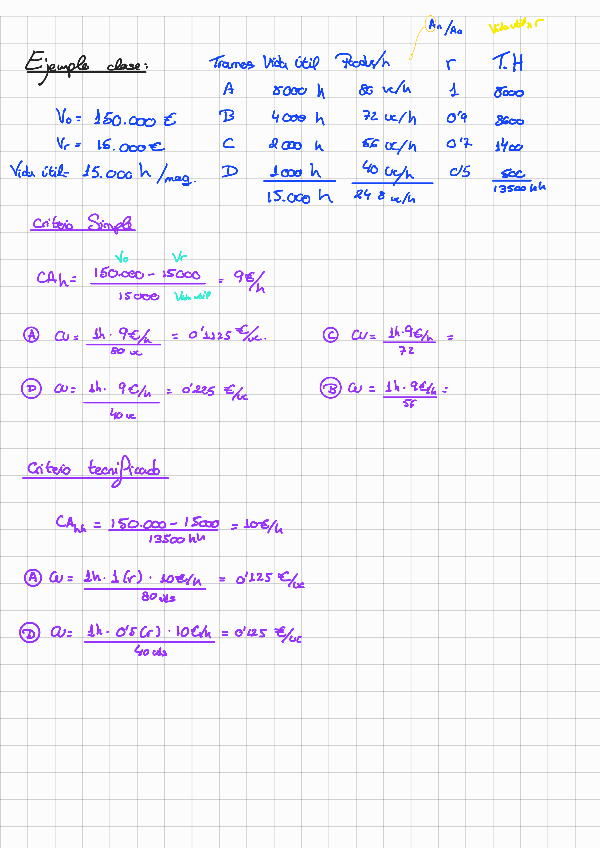 An/Ao Vida útil x r
Ejemplo clase: Tramos Vida útil Produc/h r T.H
A 8000 h 80 uc/h 1 8000
V₀ = 150.000 € B 4000 h 72 uc/h 0'9 3600
Vr = 15.000 € C 2000 h 56 uc/h 0'7 1400
Vida útil = 15.000 h /maq. D 1000 h 40 uc/h 0'5 500
15.000 h 248 uc/h 13500 hh
Criterio Simple
V₀ Vr
CAh = 150.000 - 15000 / 15000 = 9€/h
Vida útil
A CU = 1h · 9€/h / 80 uc = 0'1125 €/uc. C CU = 1h · 9€/h / 72 =
D CU = 1h · 9€/h / 40 uc = 0'225 €/uc B CU = 1h · 9€/h / 56 =
Criterio tecnificado
CAhh = 150.000 - 15000 / 13500 hh = 10€/h
A CU = 1h · 1(r) · 10€/h / 80 uds = 0'125 €/uc
D CU = 1h · 0'5(r) · 10€/h / 40 uds = 0'125 €/uc